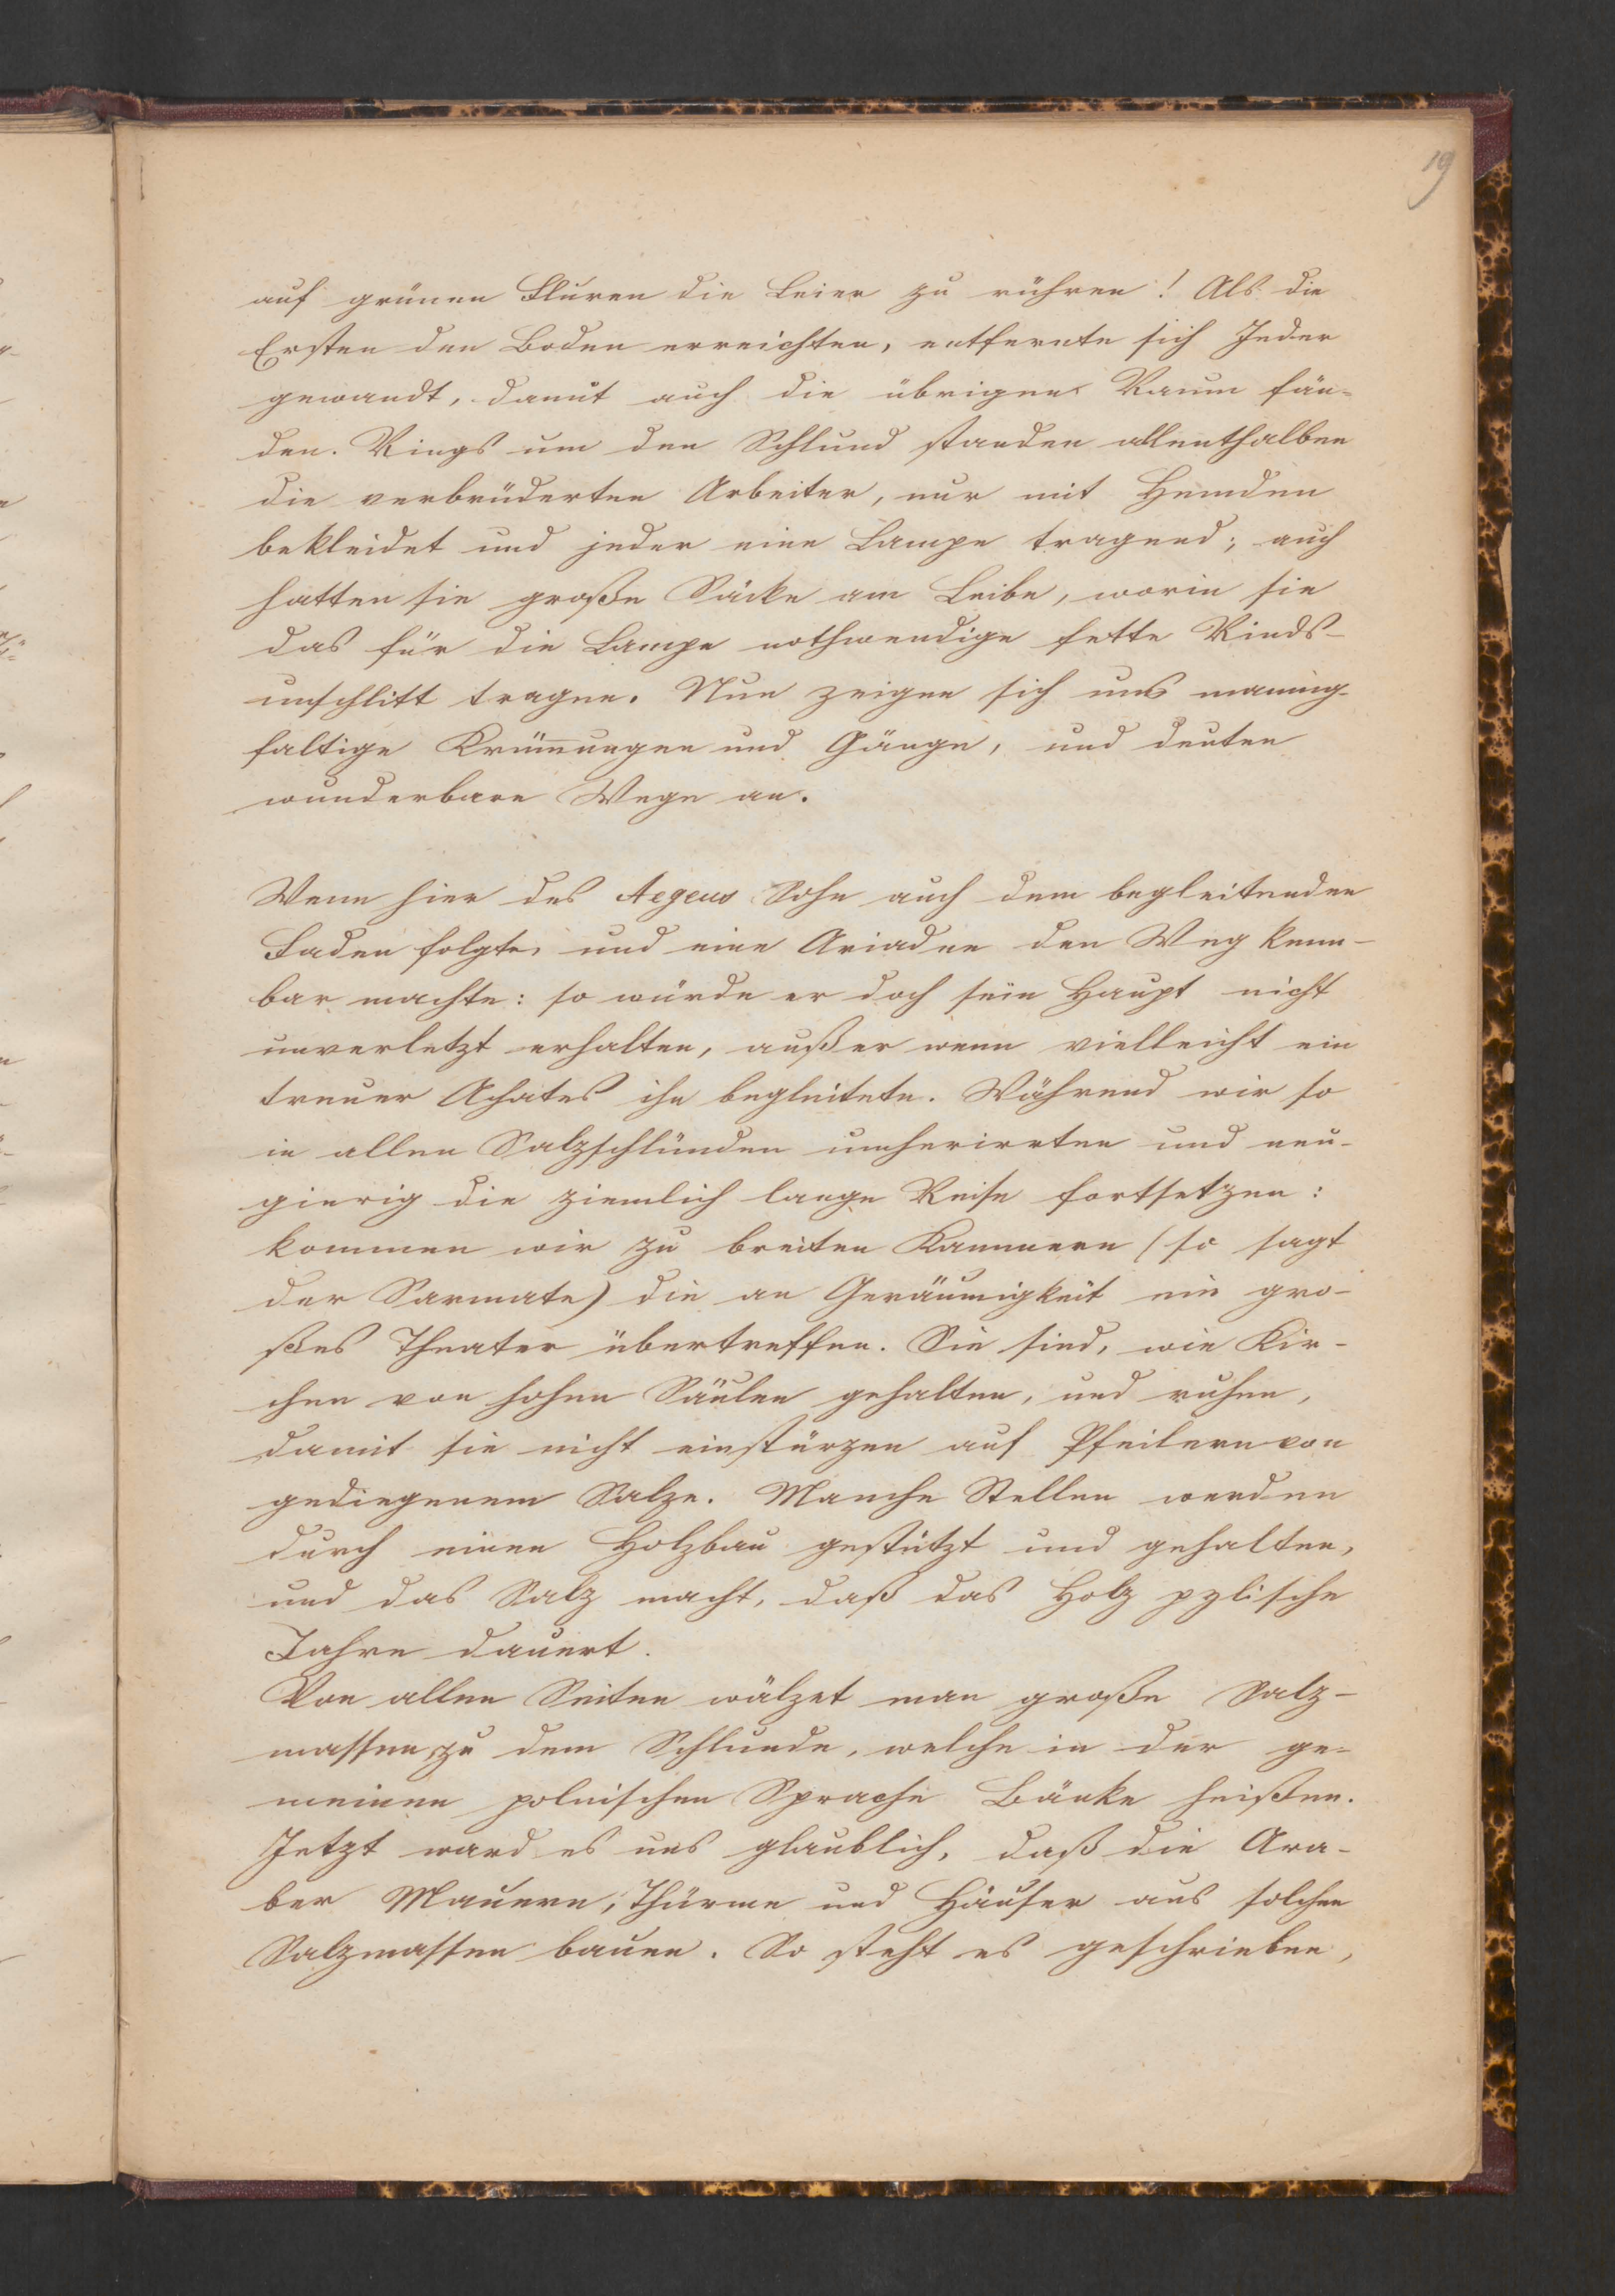 19
auf grünen Fluren die Leier zu rühren! Als die
Ersten den Boden erreichten, entfernte sich Jeder
gewandt, damit auch die übrigen Raum fän-
den. Rings um den Schlund standen allenthalben
die verbrüderten Arbeiter, nur mit Hemden
bekleidet und jeder eine Lampe tragend; auch
hatten sie große Säcke am Leibe, worin sie
das für die Lampe nothwendige fette Rinds-
unschlitt tragen. Nun zeigen sich uns mannig-
faltige Krümungen und Gänge, und deuten
wunderbare Wege an.
Wenn hier des Aegeus Sohn auch dem begleitenden
Faden folgte, und eine Ariadne den Weg kenn-
bar machte: so würde er doch sein Haupt nicht
unverletzt erhalten, außer wenn vielleicht ein
treuer Achates ihn begleitete. Während wir so
in allen Salzschlünden umherirrten und neu-
gierig die ziemlich lange Reise fortsetzen:
kommen wir zu breiten Kammern (so sagt
der Sarmate) die an Geräumigkeit ein gro-
ßes Theater übertreffen. Sie sind, wie Kir-
chen von hohen Säulen gehalten, und ruhen,
damit sie nicht einstürzen auf Pfeilern von
gediegenem Salze. Manche Stellen werden
durch einen Holzbau gestützt und gehalten,
und das Salz macht, daß das Holz pylische
Jahre dauert.
Von allen Seiten wälzet man große Salz-
massen zu dem Schlunde, welche in der ge-
meinen polnischen Sprache Bänke heißen.
Jetzt ward es uns glaublich, daß die Ara-
ber Mauern, Thürme und Häuser aus solchen
Salzmassen bauen. So steht es geschrieben,